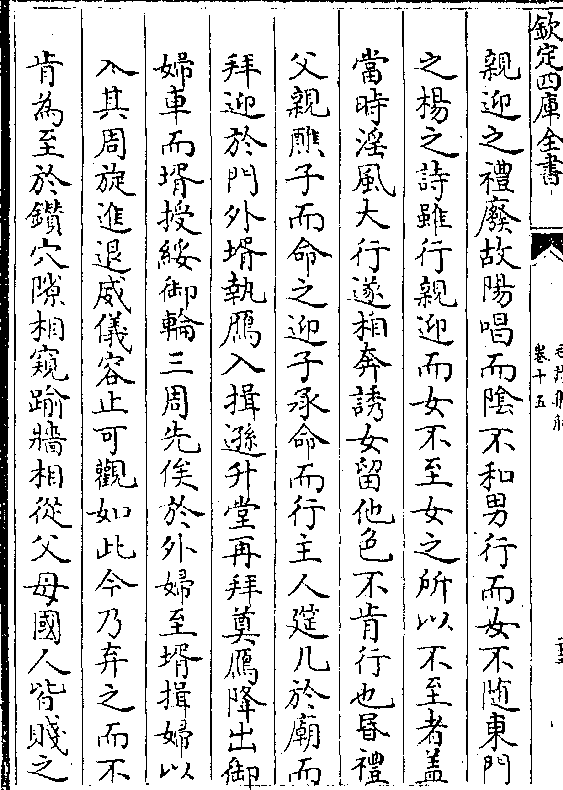 欽定四庫全書
卷十五
親迎之禮廢故陽唱而陰不和男行而女不随東門
之楊之詩雖行親迎而女不至女之所以不至者盖
當時淫風大行遂相奔誘女留他色不肯行也昏禮
父親醮子而命之迎子承命而行主人筵几於廟而
拜迎於門外壻執鴈入揖遜升堂再拜奠鴈降出御
婦車而壻授綏御輪三周先俟於外婦至壻揖婦以
入其周旋進退威儀容止可觀如此今乃弃之而不
肯為至於鑽穴隙相窺踰牆相從父母國人皆賤之